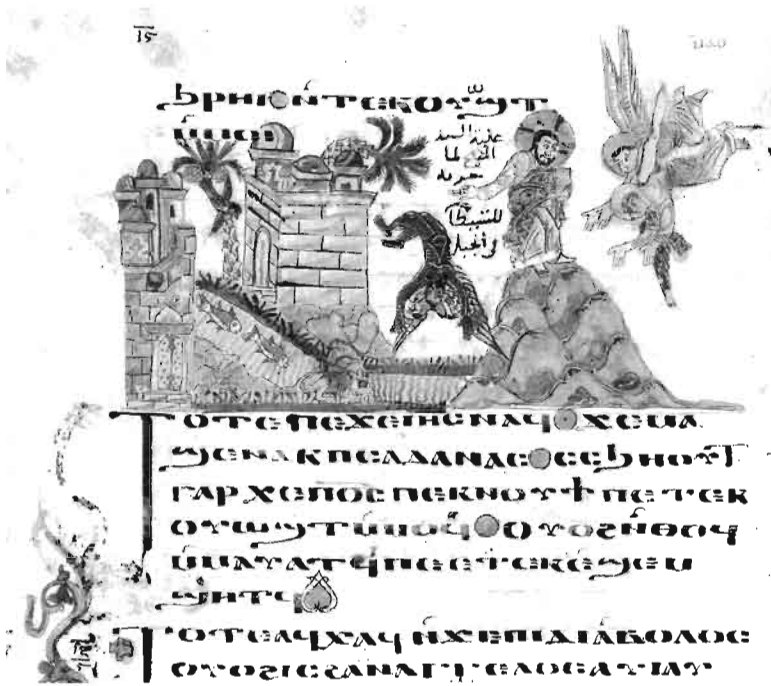 ϧⲣⲏⲓ ⲛ̀ⲧⲉⲕⲟⲩⲱϣⲧ
ⲙ̀ⲙⲟⲓ
غلبة السيد
المسيح لما
جربه
الشيطان
في الجبل
ⲧⲟⲧⲉⲡⲉϫⲉⲓⲏⲥⲛⲁϥ ϫⲉⲙⲁ
ϣⲉⲛⲁⲕⲡⲥⲁⲇⲁⲛⲁⲥ ⲥⲥϧⲏⲟⲩⲧ
ⲅⲁⲣϫⲉⲡⲟⲥⲡⲉⲕⲛⲟⲩϯⲡⲉⲧⲉⲕ
ⲟⲩⲱϣⲧⲙ̀ⲙⲟϥ ⲟⲩⲟϩⲛ̀ⲑⲟϥ
ⲙ̀ⲙⲁⲩⲁⲧϥⲡⲉⲉⲧⲉⲕⲉ̀ϣⲉⲙ
ϣⲏⲧϥ
ⲧⲟⲧⲉⲁϥⲭⲁϥⲛ̀ϫⲉⲡⲓⲇⲓⲁⲃⲟⲗⲟⲥ
ⲟⲩⲟϩⲓⲥϩⲁⲛⲁⲅⲅⲉⲗⲟⲥⲁⲩⲓⲁⲩ